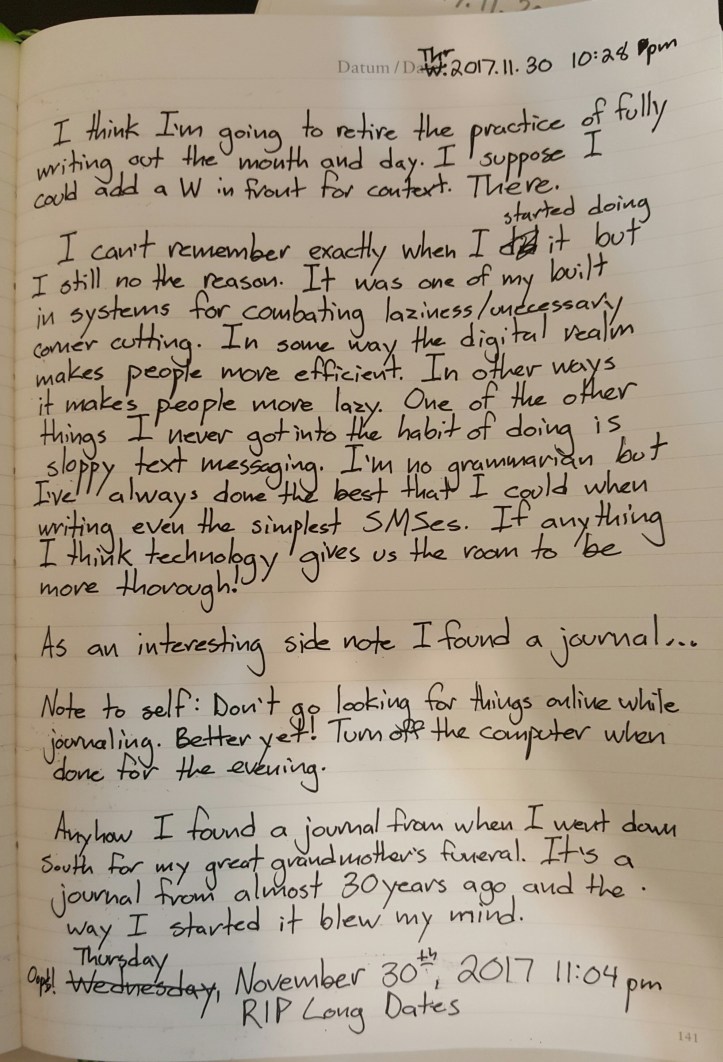 Datum / Da
Thr
W. 2017.11.30 10:28 pm
I think I'm going to retire the practice of fully
writing out the month and day. I suppose I
could add a W in front for context. There.
started doing
I can't remember exactly when I did it but
I still no the reason. It was one of my built
in systems for combating laziness/unecessary
corner cutting. In some way the digital realm
makes people more efficient. In other ways
it makes people more lazy. One of the other
things I never got into the habit of doing is
sloppy text messaging. I'm no grammarian but
I've always done the best that I could when
writing even the simplest SMSes. If anything
I think technology gives us the room to be
more thorough!
As an interesting side note I found a journal...
Note to self: Don't go looking for things online while
journaling. Better yet! Turn off the computer when
done for the evening.
Anyhow I found a journal from when I went down
South for my great grandmother's funeral. It's a
journal from almost 30 years ago and the
way I started it blew my mind.
Thursday
Oops! Wednesday, November 30th, 2017 11:04 pm
RIP Long Dates
141